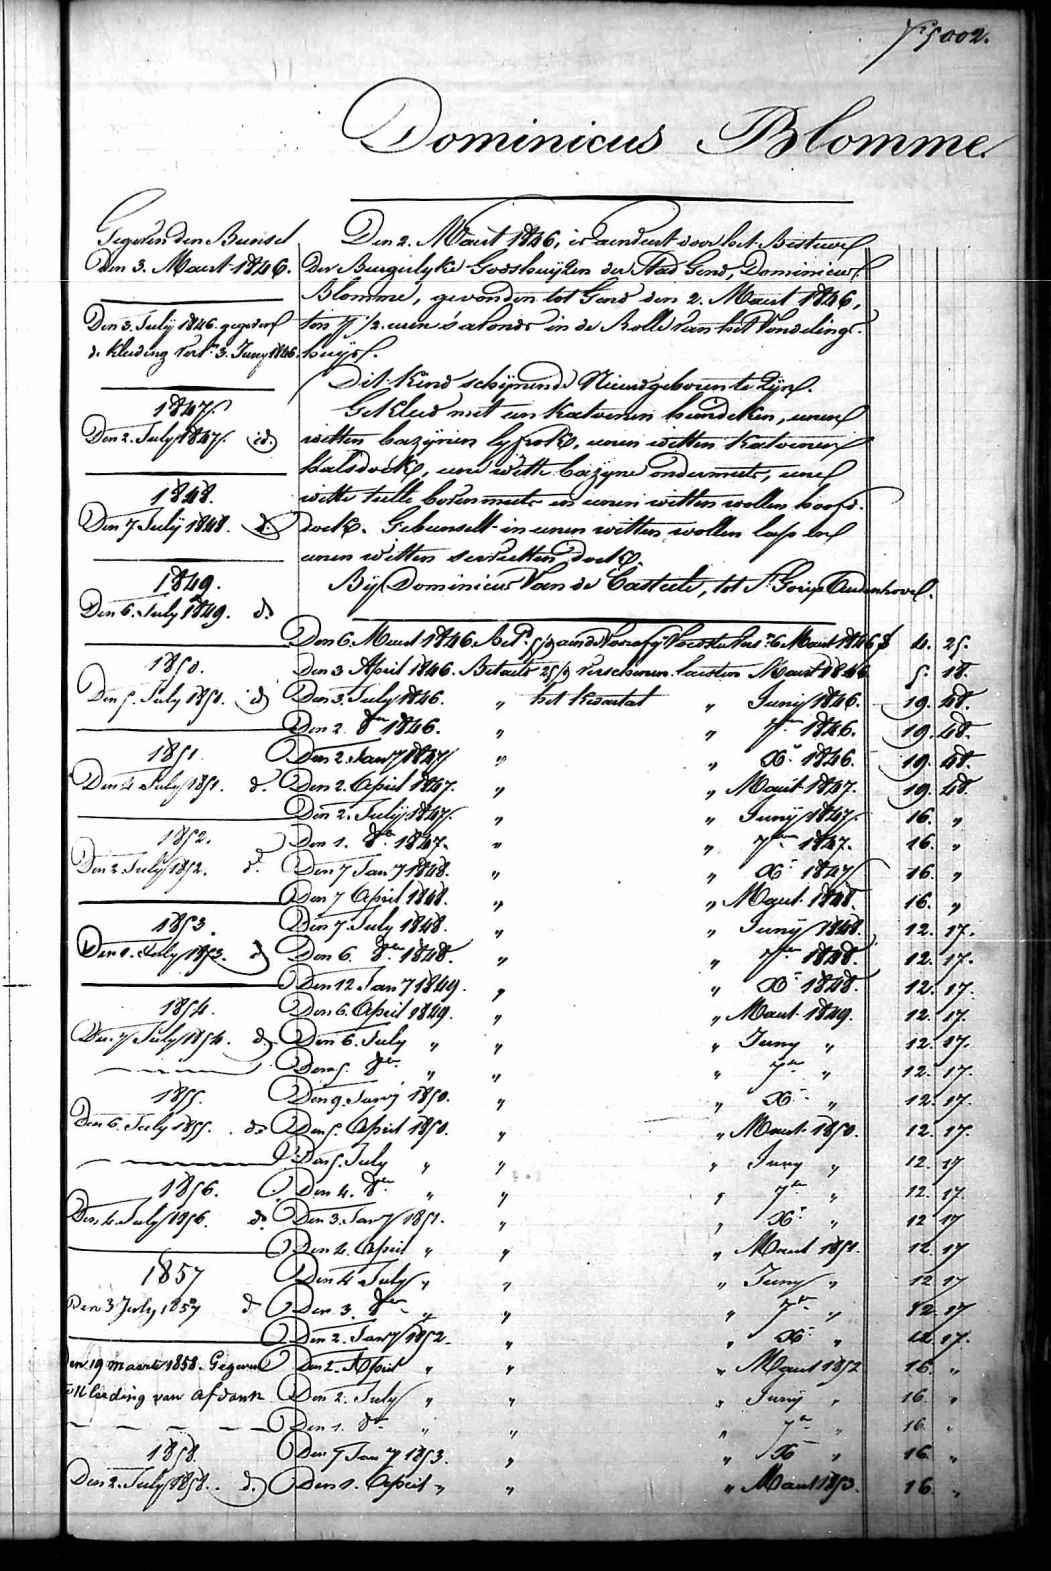 5002.
Dominicus Blomme
Gegeven den Bunsel
Den 3. Maart 1846.
Den 3. July 1846. gegeven
de kleeding vert. 3. Juny 1846.
1847.
Den 2. July 1847. id.
1848.
Den 7 July 1848. d.
1849.
Den 6. July 1849. d.
1850.
Den 5. July 1850. id
1851.
Den 4 July 1851. d.
1852.
Den 2. July 1852. d.
1853.
Den 1. July 1853. d
1854.
Den 7 July 1854. d.
1855.
Den 6. July 1855. d.
1856.
Den 4. July 1856. d.
1857
Den 3 July 1857 d
den 19 maarte 1858. Gegeven
kleeding van afdank
1858.
Den 2. July 1858. d.
Den 2. Maart 1846, is aenveert door het Bestuur
der Burgerlyke Godshuyzen der Stad Gend, Dominicus
Blomme, gevonden tot Gend den 2. Maart 1846,
ten 7 1/2 uren s'avonds in de Rolle van het Vondeling-
huys.
Dit kind schynende Nieuwgeboren te zyn.
Gekleed met een katoenen hemdeken, eenen
witten bazynen lyfrok, eenen witten katoenen
halsdoek, eene witte bazyne ondermuts, eene
witte tulle bovenmuts en eenen witten wollen hoofd-
doek. Gebunselt in eenen witten wollen lap en
eenen witten servietten doek.
Bij Dominicus Van de Casteele, tot St Gorix Audenhove.
Den 6. Maart 1846 Bet. 5/ aen de Voedster 6 Maart 1846 f 4. 25.
Den 3 April 1846. Betaelt 25/ verschenen laesten Maart 1846 5. 18.
Den 3. July 1846. " het kwartal " Juny 1846. 19. 48.
Den 2. 8er 1846. " " 7er 1846. 19. 48.
Den 2. Janry 1847 " " Xr 1846. 19. 48.
Den 2. April 1847. " " Maart 1847. 19. 48
Den 2. July 1847. " " Juny 1847. 16. "
Den 1. 8er 1847. " " 7er 1847. 16. "
Den 7 Janry 1848. " " Xr 1847 16. "
Den 7 April 1848. " " Maart 1848. 16. "
Den 7. July 1848. " " Juny 1848. 12. 17.
Den 6. 8er 1848. " " 7er 1848. 12. 17.
Den 12 Janry 1849. " " Xr 1848. 12. 17.
Den 6. April 1849. " " Maart 1849. 12. 17.
Den 6. July " " " Juny " 12. 17.
Den 5. 8er " " " 7er " 12. 17.
Den 9. Janry 1850. " " Xr " 12. 17.
Den 5. April 1850. " " Maart 1850. 12. 17.
Den 5. July " " " Juny " 12. 17
Den 4. 8er " " " 7er " 12. 17.
Den 3. Janry 1851. " " Xr " 12 17
Den 4. April " " " Maart 1851. 12 17
Den 4 July " " " Juny " 12 17
Den 3. 8er " " " 7er " 12. 17
Den 2. Janry 1852. " " Xr " 12 17.
Den 2. April " " " Maart 1852 16. "
Den 2. July " " " Juny " 16. "
Den 1. 8er " " " 7er " 16. "
Den 7 Janry 1853. " " Xr " 16. "
Den 1. April " " " Maart 1853. 16. "